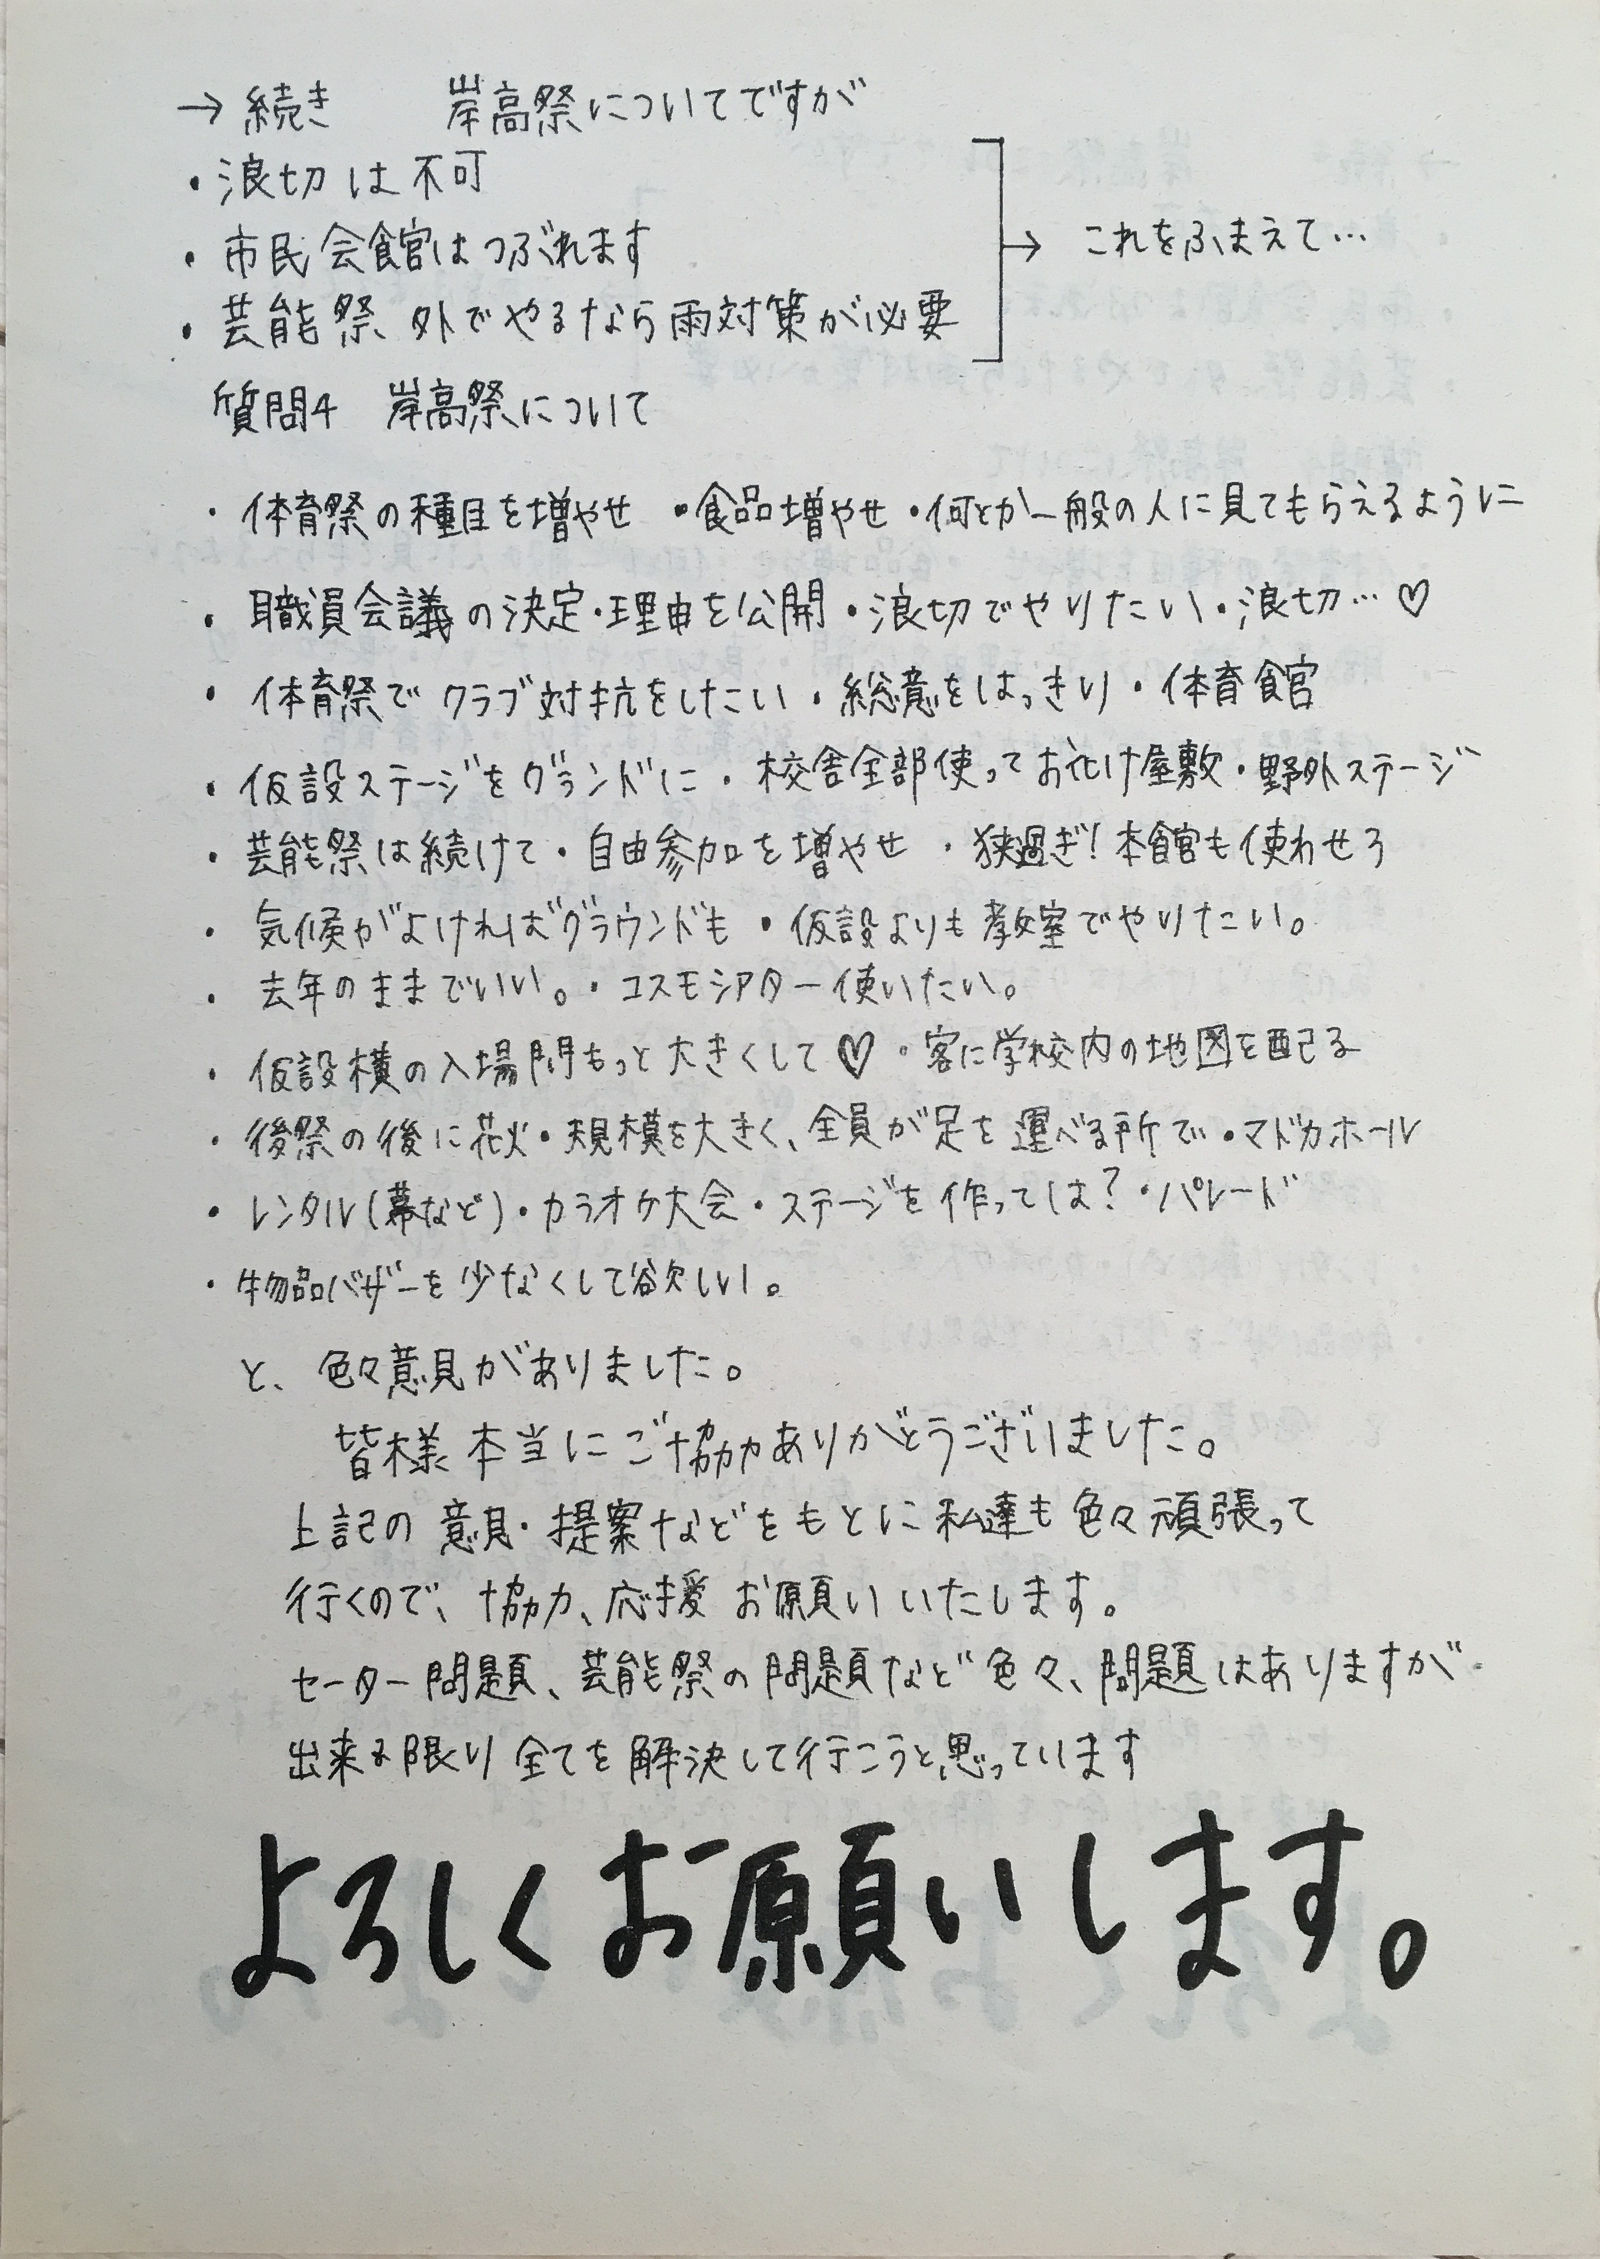 → 続き　岸高祭についてですが
・浪切は不可
・市民会館はつぶれます
・芸能祭 外でやるなら雨対策が必要
→ これをふまえて…
質問4　岸高祭について
・体育祭の種目を増やせ ・食品増やせ ・何とか一般の人に見てもらえるように
・職員会議の決定・理由を公開 ・浪切でやりたい ・浪切…♡
・体育祭でクラブ対抗をしたい ・総意をはっきり ・体育館
・仮設ステージをグランドに ・校舎全部使ってお化け屋敷 ・野外ステージ
・芸能祭は続けて ・自由参加を増やせ ・狭過ぎ!本館も使わせろ
・気候がよければグラウンドも ・仮設よりも教室でやりたい。
・去年のままでいい。・コスモシアター使いたい。
・仮設横の入場門もっと大きくして♡ ・客に学校内の地図を配る
・後祭の後に花火 ・規模を大きく、全員が足を運べる所で ・マドカホール
・レンタル(幕など) ・カラオケ大会 ・ステージを作っては? ・パレード
・物品バザーを少なくして欲しい。
と、色々意見がありました。
皆様本当にご協力ありがとうございました。
上記の意見・提案などをもとに私達も色々頑張って
行くので、協力、応援お願いいたします。
セーター問題、芸能祭の問題など色々、問題はありますが
出来る限り全てを解決して行こうと思っています
よろしくお願いします。